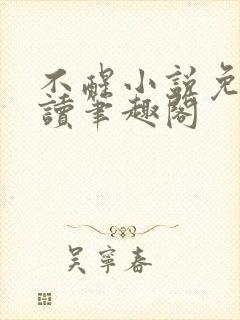 不醒小説免
讀筆趣閣
吳寧春